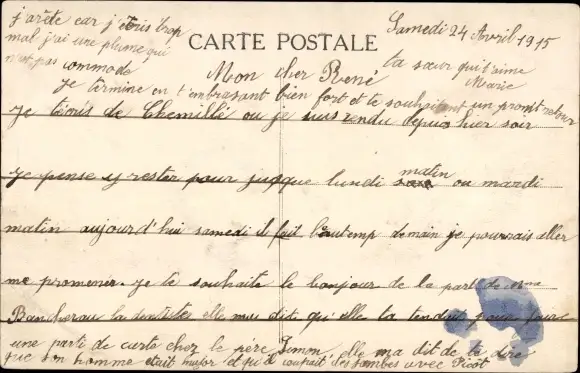 Samedi 24 Avril 1915
CARTE POSTALE
Mon cher René
je t'ecris de Chemillé ou je suis rendu depuis hier soir
je pense y rester pour jusque lundi matin ou mardi
matin aujourd'hui samedi il fait beautemp demain je pourrais aller
me promener. je te souhaite le bonjour de la part de
la dentiste elle mu dit qu'elle ta tendu pour faire
une parti de carte chez le père Simon, elle ma dit de te dire
que son homme etait major et qu'il avec Picot
j'arête car j'ecris trop
mal j'ai une plume qui
n'est pas commode
je termine en t'embrasant bien fort et te souhaitent un promt retour
ta sœur qui t'aime
Marie